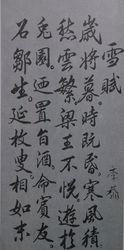 雪賦
歲將暮。時既昏。寒風積
愁雲繁。梁王不悅。遊於
兔園。迺置旨酒。命賓友。
召鄒生。延枚叟。相如末